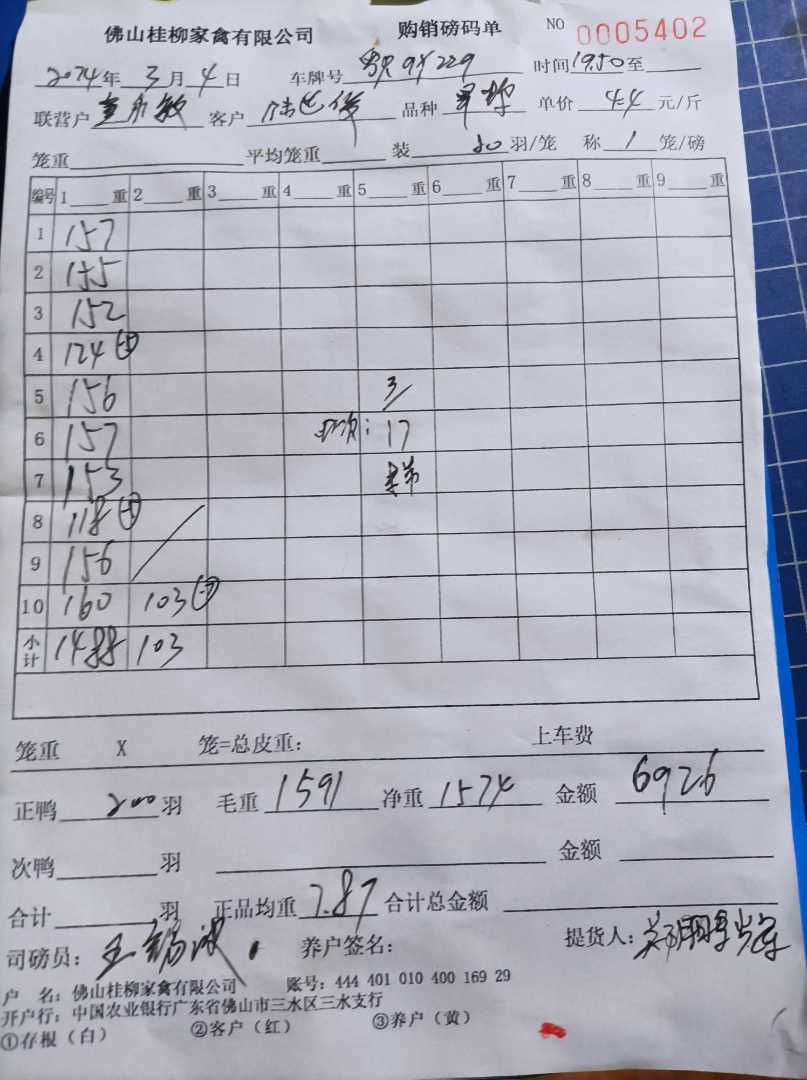 佛山桂柳家禽有限公司 购销磅码单 NO 0005402
2024年 3月 4日 车牌号 9X229 时间 19:50 至
联营户 客户 品种 单价 4.4 元/斤
笼重 平均笼重 装 20 羽/笼 称 1 笼/磅
编号 1 重 2 重 3 重 4 重 5 重 6 重 7 重 8 重 9 重
1 157
2 155
3 152
4 124
5 156 3/
6 157 : 17
7 153
8 118
9 156 /
10 160 103
小计 1488 103
笼重 X 笼=总皮重: 上车费
正鸭 200 羽 毛重 1591 净重 1574 金额 6926
次鸭 羽 金额
合计 羽 正品均重 7.87 合计总金额
司磅员: 养户签名: 提货人:
户 名: 佛山桂柳家禽有限公司 账号: 444 401 010 400 169 29
开户行: 中国农业银行广东省佛山市三水区三水支行
①存根(白) ②客户(红) ③养户(黄)